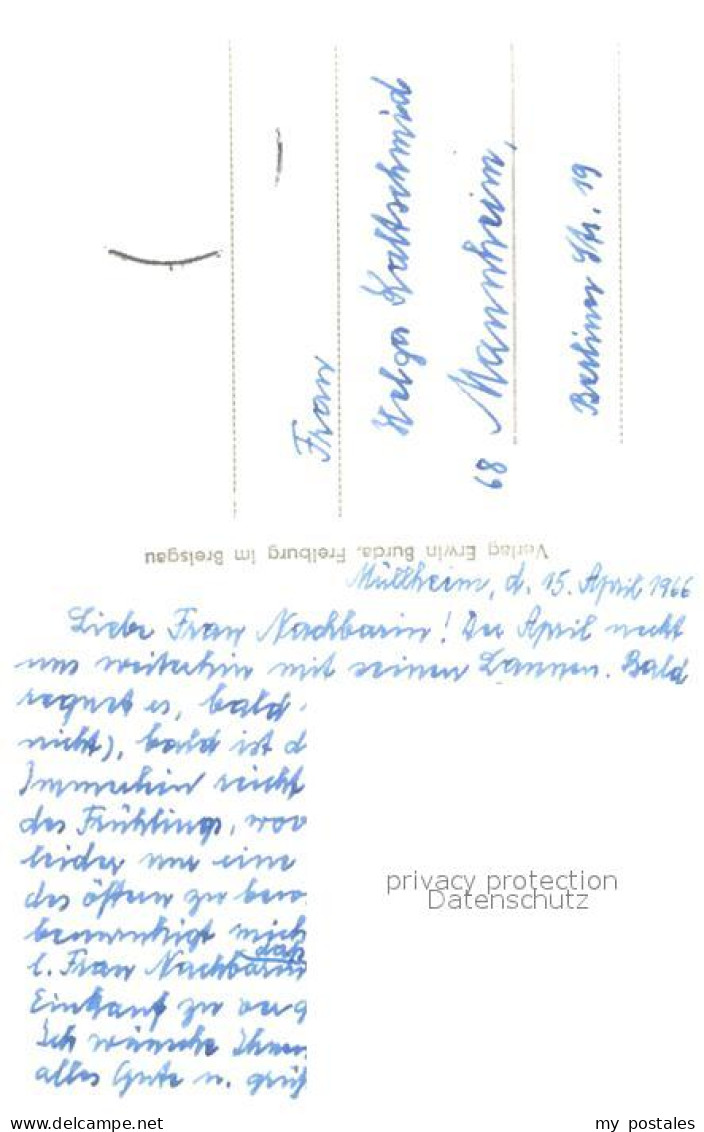 Frau
Helga Kaltschmid
68 Mannheim,
Berliner Str. 19
Verlag Erwin Burda, Freiburg im Breisgau
Müllheim, d. 15. April 1966
Liebe Frau Nachbarin! Der April neckt
uns weiterhin mit seinen Launen. Bald
regnet es, bald
nicht), bald ist d
Immerhin reicht
des Frühlings, wov
leider nur eine
des öftern zu bew
beunruhigt mich
daß
l. Frau Nachbarin
Einkauf zu verg
Ich wünsche Ihnen
alles Gute u. grüß
privacy protection
Datenschutz
www.delcampe.net
my_postales